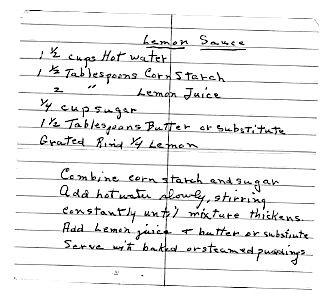 Lemon Sauce
1 1/2 cups Hot water
1 1/2 Tablespoons Corn Starch
2 " Lemon Juice
1/4 cup sugar
1 1/2 Tablespoons Butter or substitute
Grated Rind 1/4 Lemon
Combine corn starch and sugar
Add hot water slowly, stirring
constantly until mixture thickens.
Add Lemon juice & butter or substiute
Serve with baked or steamed puddings